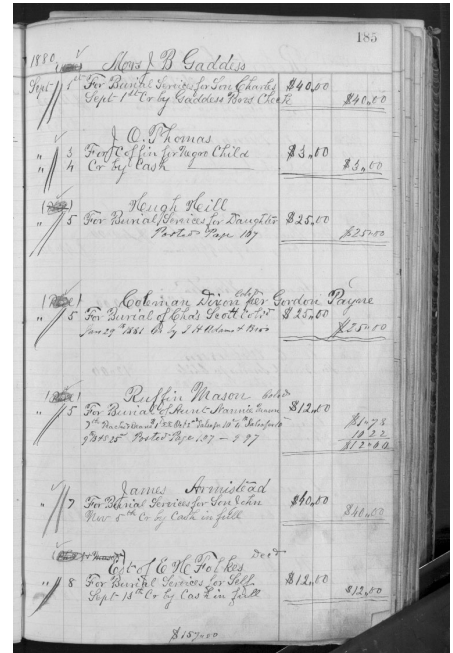 185
1880 Mrs J B Gaddess
Sept 1st For Burial Services for Son Charles $40.00
Sept 1st Cr by Gaddess Bros Check $40.00
J. O. Thomas
" 3 For Coffin for Negro Child $3.00
" 4 Cr by Cash $3.00
Hugh Hill
" 5 For Burial Services for Daughter $25.00
Posted Page 107 $25.00
Coleman Dixon Cold per Gordon Payne
" 5 For Burial of Cha's Scott Cold $25.00
Jan 29th 1881 Cr by J H Adams & Bros $25.00
Ruffin Mason Cold
" 5 For Burial of Aunt $12.00
$1.78
10.22
Posted Page 107 $12.00
James Armistead
" 7 For Burial Services for Son John $40.00
Nov 5th Cr by Cash in full $40.00
Est of E H Folkes Decd
" 8 For Burial Services for Self $12.00
Sept 15th Cr by Cash in full $12.00
$157.00